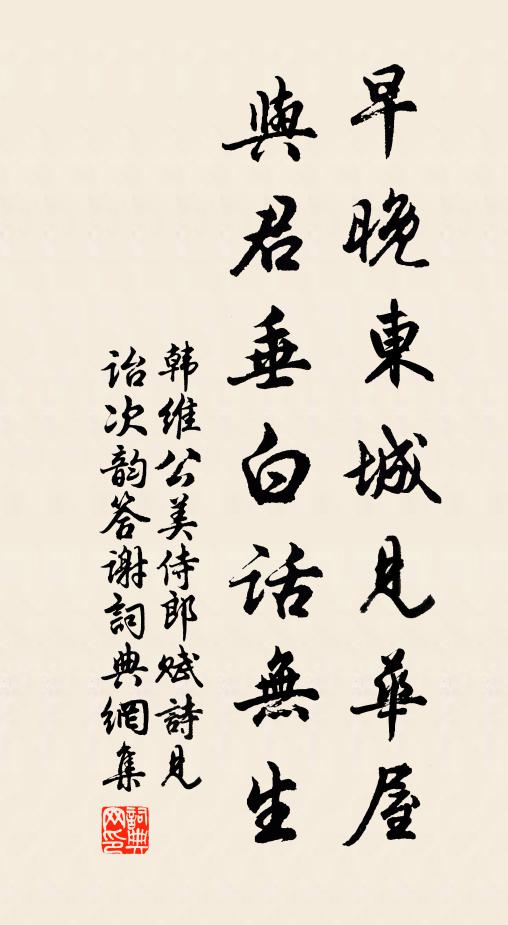 早晚東城見華屋
與君垂白話無生
韩維公美侍郎赋詩見
诒次韵答谢詞典網集
詞典网印